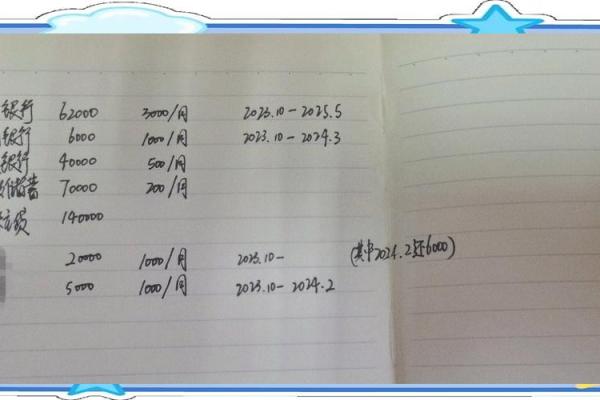 银行 62000 3000/月 2023.10-2025.5
银行 6000 1000/月 2023.10-2024.3
银行 40000 500/月
储蓄 70000 200/月
140000
20000 1000/月 2023.10- (其中2024.2还6000)
5000 1000/月 2023.10-2024.2